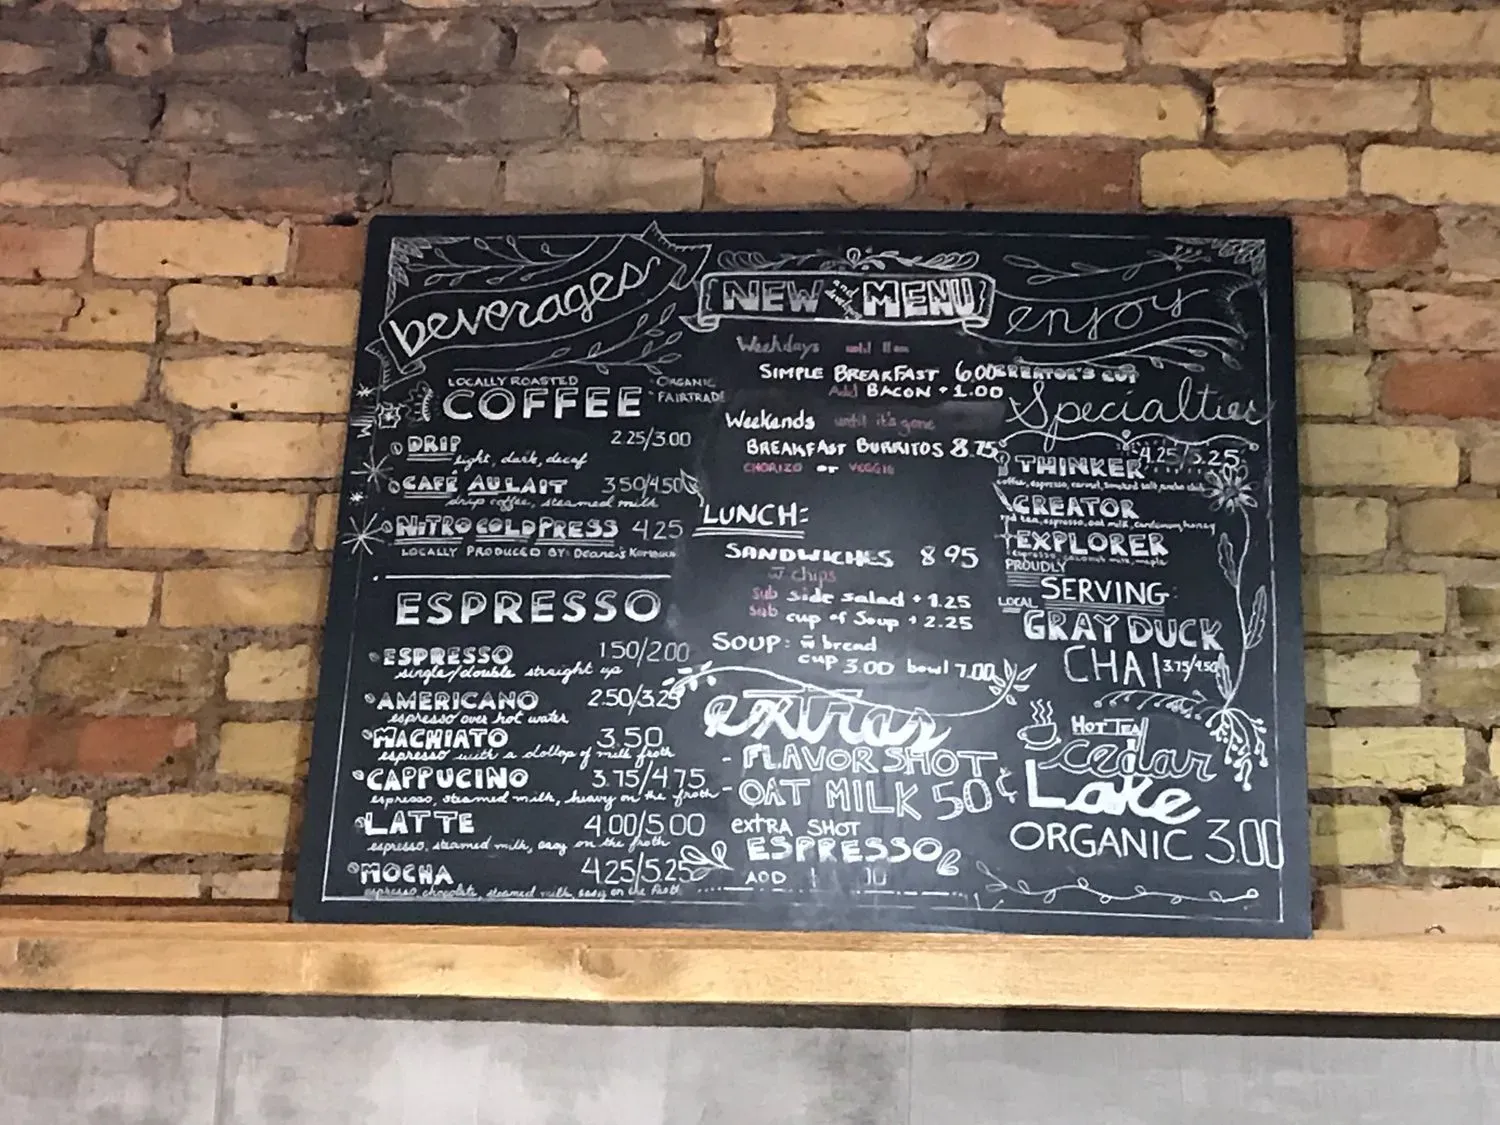 beverages
LOCALLY ROASTED
COFFEE
· ORGANIC
· FAIRTRADE
DRIP 2.25/3.00
light, dark, decaf
CAFÉ AU LAIT 3.50/4.50
drip coffee, steamed milk
NITRO COLD PRESS 4.25
LOCALLY PRODUCED BY: Deane's Kombucha
ESPRESSO
ESPRESSO 1.50/2.00
single/double straight up
AMERICANO 2.50/3.25
espresso over hot water
MACHIATO 3.50
espresso with a dollop of milk froth
CAPPUCINO 3.75/4.75
espresso, steamed milk, heavy on the froth
LATTE 4.00/5.00
espresso, steamed milk, easy on the froth
MOCHA 4.25/5.25
espresso, chocolate, steamed milk, easy on the froth
NEW and MENU
Weekdays until 11am
SIMPLE BREAKFAST 6.00
Add BACON + 1.00
Weekends until it's gone
BREAKFAST BURRITOS 8.75
CHORIZO or VEGGIE
LUNCH:
SANDWICHES 8.95
w chips
sub side salad + 1.25
sub cup of Soup + 2.25
SOUP: w bread
cup 3.00 bowl 7.00
extras
- FLAVOR SHOT
- OAT MILK 50¢
extra SHOT
ESPRESSO
ADD
enjoy
CREATOR'S CUP
Specialties
4.25/5.25
THINKER
coffee, espresso, caramel, smoked salt,
CREATOR
red tea, espresso, oat milk, cardamom, honey
EXPLORER
espresso, coconut milk, maple
PROUDLY
SERVING:
LOCAL
GRAY DUCK
CHAI 3.75/4.50
HOT TEA
cedar
Lake
ORGANIC 3.00